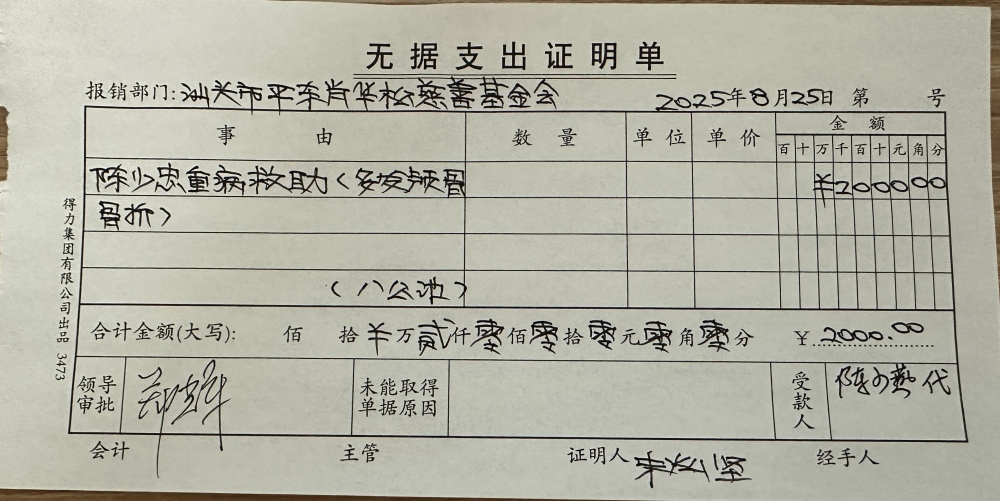 无据支出证明单
报销部门:汕头市平东肖华松慈善基金会 2025年8月25日 第 号
事 由 数量 单位 单价 金额
百十万千百十元角分
陈少忠重病救助(多发颅骨 ¥2000000
骨折)
(八公池)
合计金额(大写): 佰 拾 ¥万贰仟零佰零拾零元零角零分 ¥2000.00
领导审批 未能取得单据原因 受款人 陈少艺代
会计 主管 证明人 经手人
得力集团有限公司出品 3473